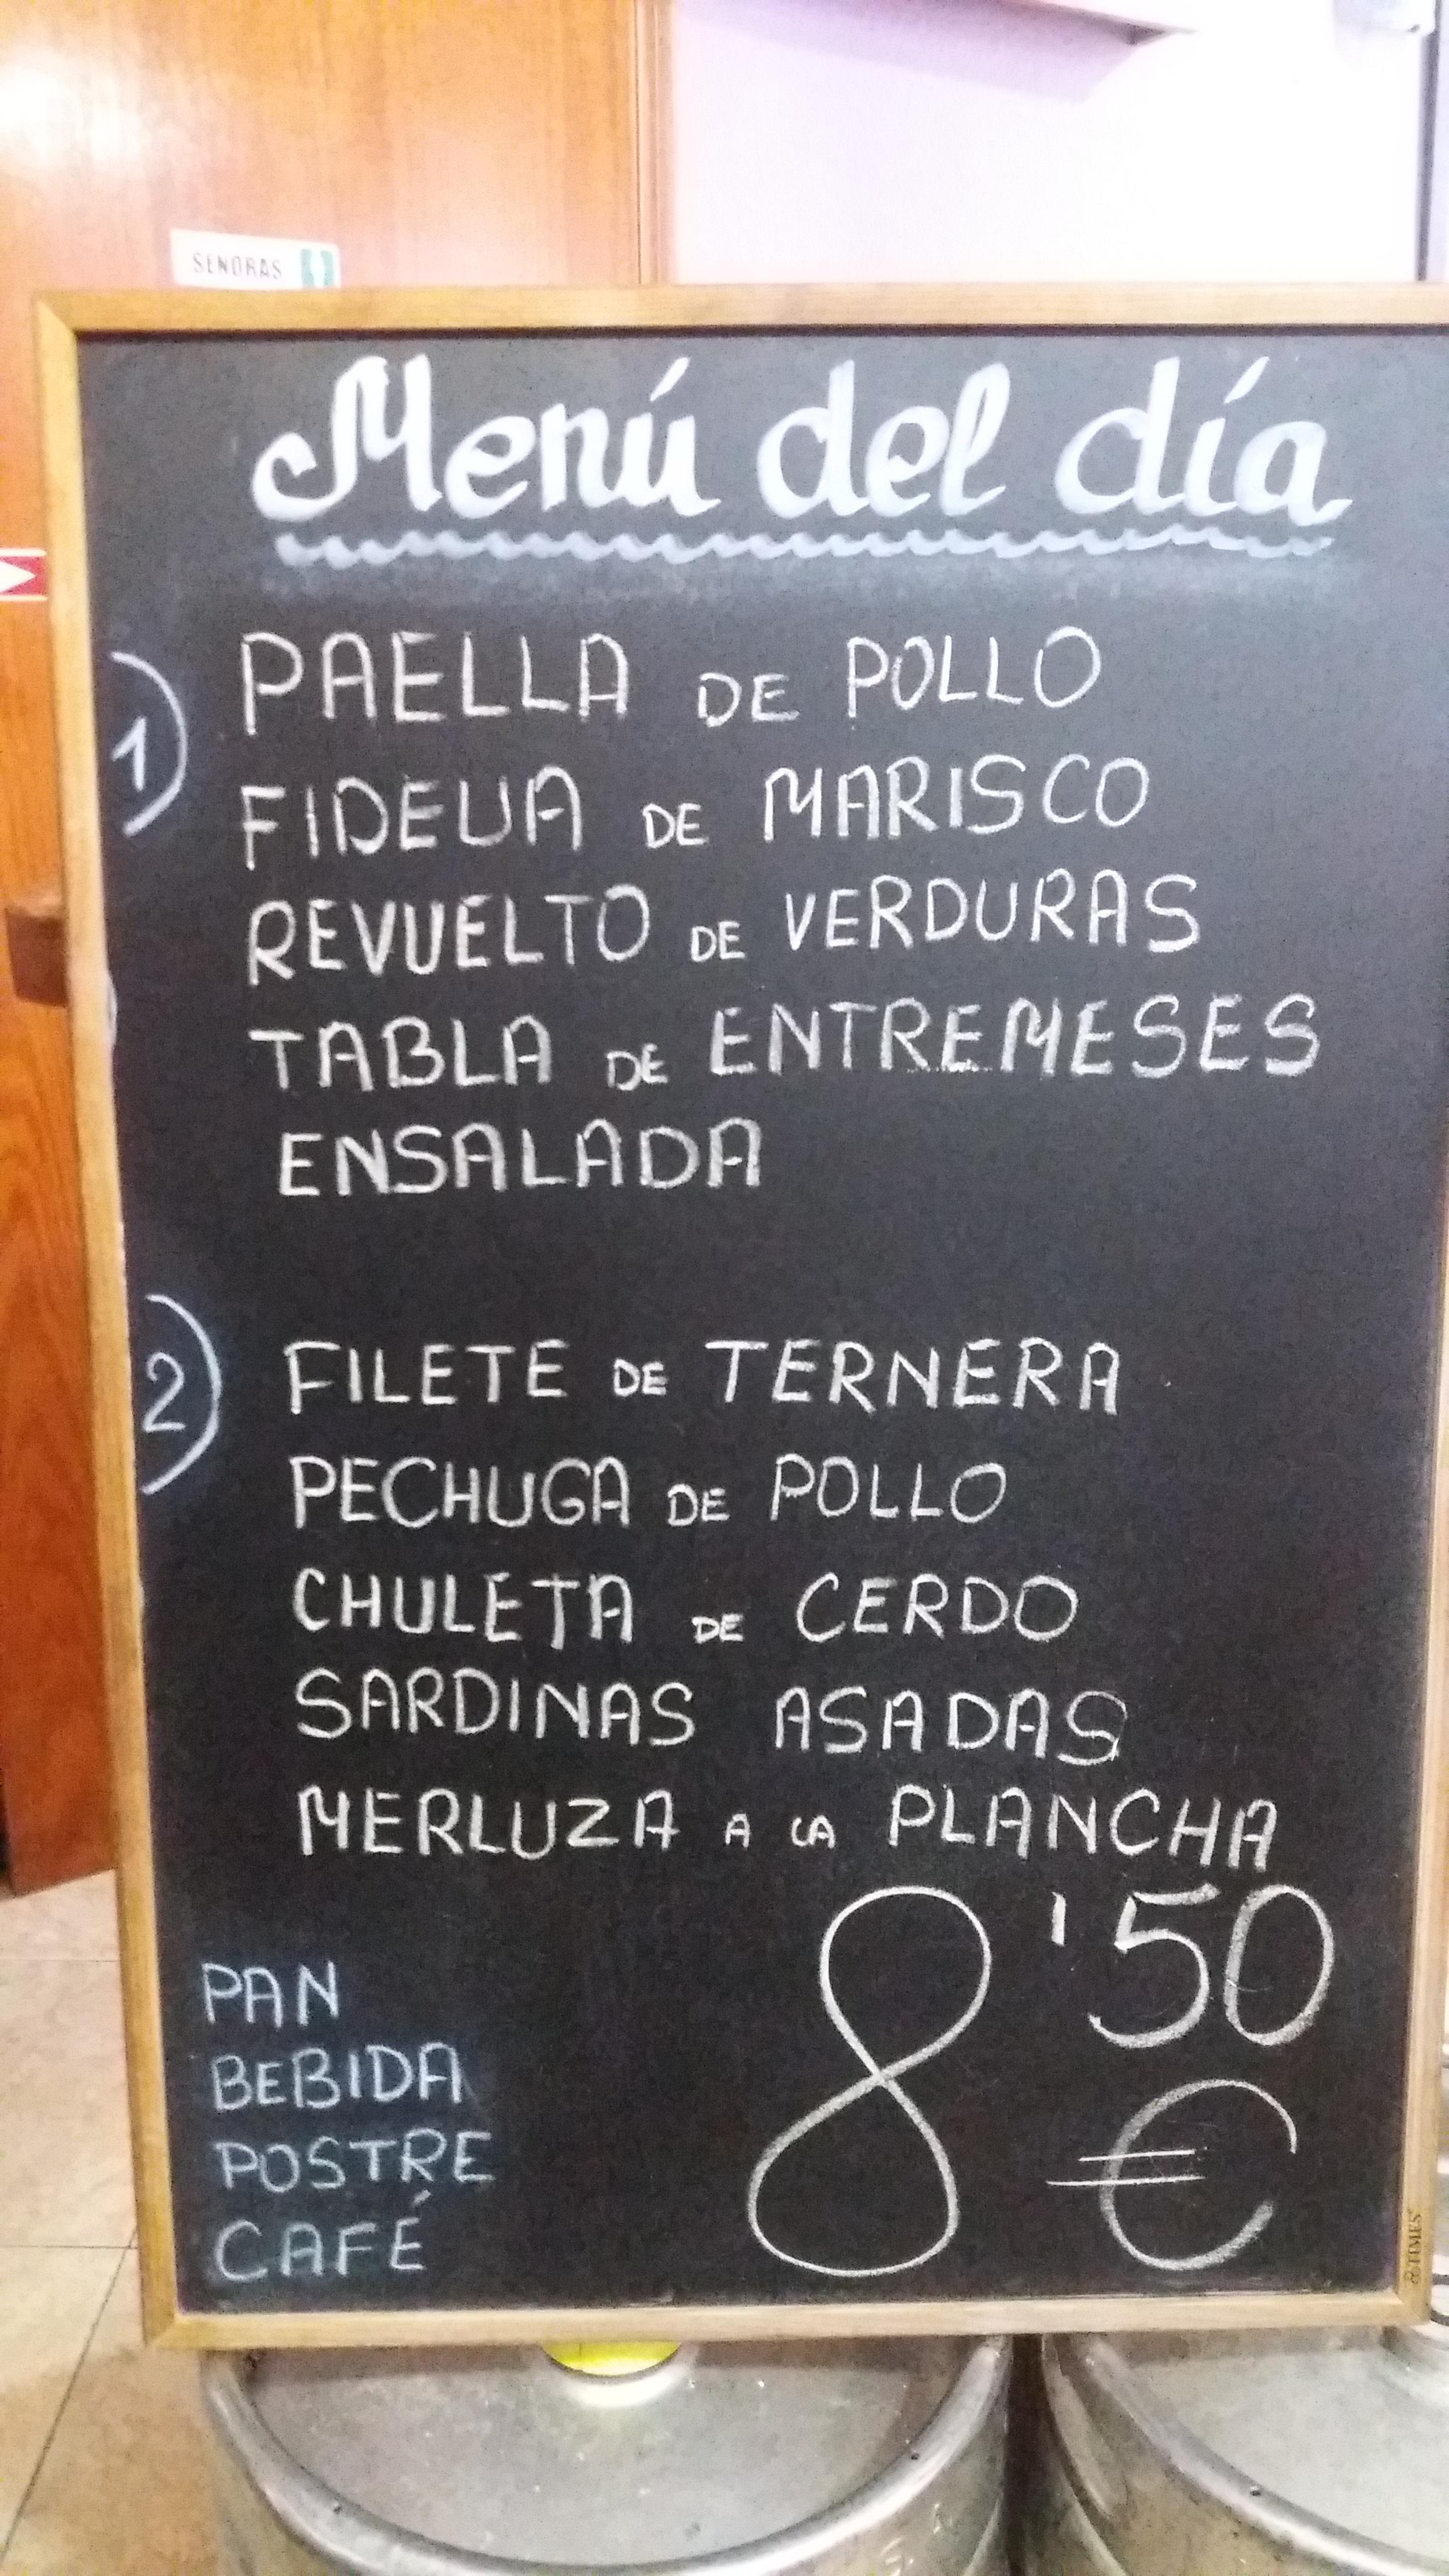 SEÑORAS
Menú del día
1) PAELLA DE POLLO
FIDEUA DE MARISCO
REVUELTO DE VERDURAS
TABLA DE ENTREMESES
ENSALADA
2) FILETE DE TERNERA
PECHUGA DE POLLO
CHULETA DE CERDO
SARDINAS ASADAS
MERLUZA A LA PLANCHA
8'50
€
PAN
BEBIDA
POSTRE
CAFÉ
TIMES